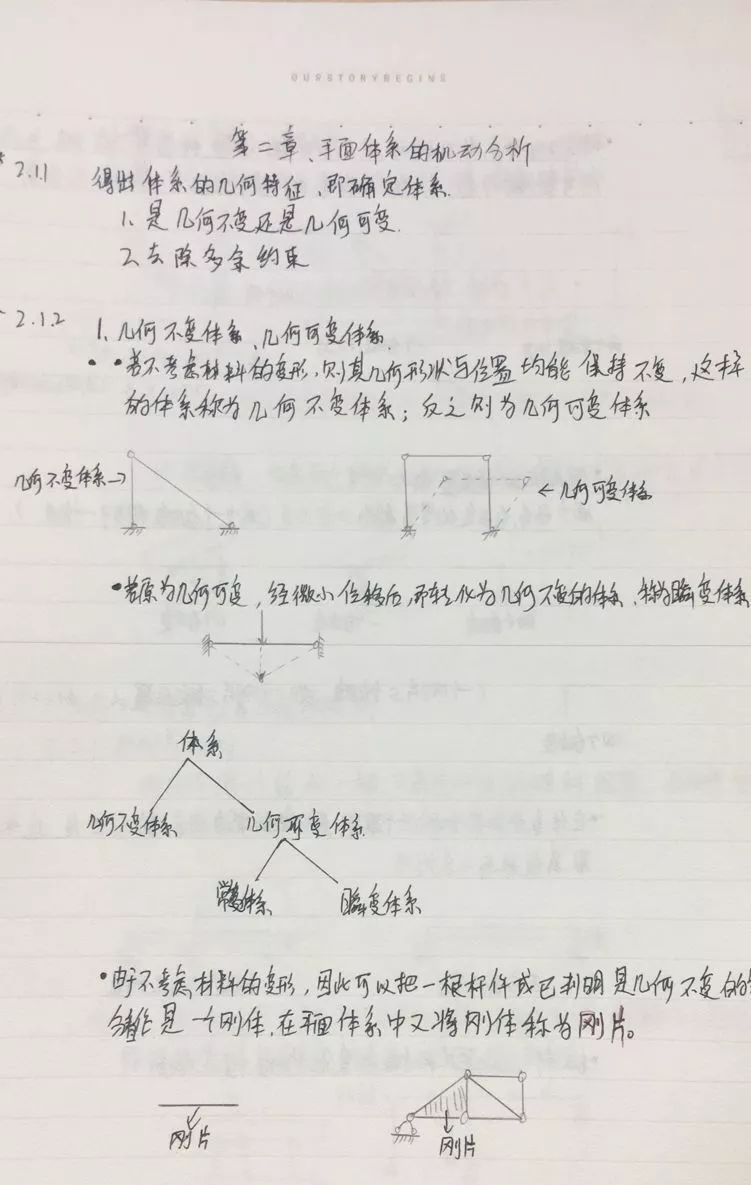 OURSTORYBEGINS
第二章、平面体系的机动分析
2.1.1
得出体系的几何特征,即确定体系.
1. 是几何不变还是几何可变.
2. 去除多余约束
2.1.2 1. 几何不变体系、几何可变体系.
• 若不考虑材料的变形,则其几何形状与位置均能保持不变,这样
的体系称为几何不变体系;反之则为几何可变体系
几何不变体系→
←几何可变体系
• 若原为几何可变,经微小位移后,即转化为几何不变的体系,称为瞬变体系
体系
几何不变体系 几何可变体系
常变体系 瞬变体系
• 由于不考虑材料的变形,因此可以把一根杆件或已判明是几何不变的
看作是一个刚体,在平面体系中又将刚体称为刚片。
刚片 刚片